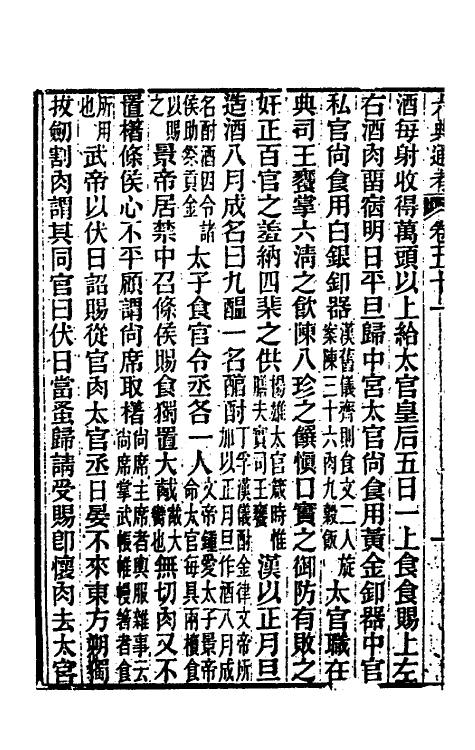 六典通考卷五十一
酒每射收得萬頭以上給太官皇后五日一上食食賜上左
右酒肉畱宿明日平旦歸中宮太官尙食用黃金釦器中官
私官尙食用白銀釦器漢舊儀齊則食文二人旋案陳三十六肉九穀飯太官職在
典司王饔掌六淸之飮陳八珍之饌愼口實之御防有敗之
奸正百官之羞納四裴之供楊雄太官箴時惟膳夫實司王饔漢以正月旦
造酒八月成名曰九醞一名醇酎丁孚漢儀酎金律文帝所加以正月旦作酒八月成名酎酒因令諸侯助祭貢金太子食官令丞各一人文帝鍾愛太子景帝命太官每具兩檟食以賜之景帝居禁中召條侯賜食獨置大胾胾大臠也無切肉又不
置櫡條侯心不平顧謂尙席取櫡尙席主席者輿服雜事云尙席掌武帳帷幔箸者食所用也武帝以伏日詔賜從官肉太官丞日晏不來東方朔獨
拔劒割肉謂其同官曰伏日當蚤歸請受賜卽懷肉去太官